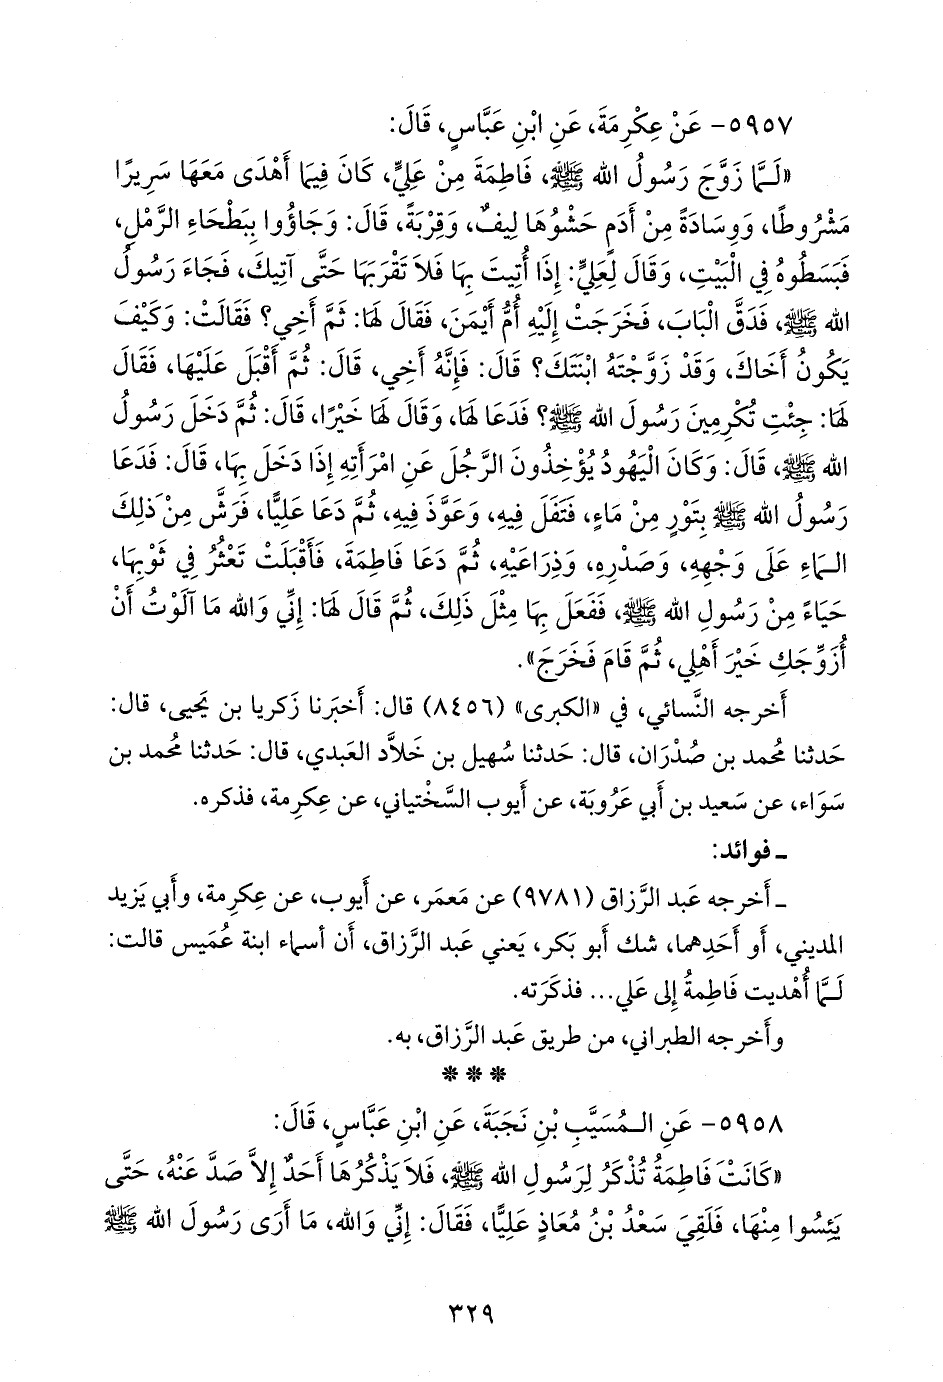 ٥٩٥٧- عَنْ عِكْرِمَةَ، عَنِ ابْنِ عَبَّاسٍ، قَالَ:
«لَـمَّا زَوَّجَ رَسُولُ الله ﷺ، فَاطِمَةَ مِنْ عَلِيٍّ، كَانَ فِيمَا أَهْدَى مَعَهَا سَرِيرًا
مَشْرُوطًا، وَوِسَادَةً مِنْ أَدَمٍ حَشْوُهَا لِيفٌ، وَقِرْبَةً، قَالَ: وَجَاؤُوا بِبَطْحَاءِ الرَّمْلِ،
فَبَسَطُوهُ فِي الْبَيْتِ، وَقَالَ لِعَلِيٍّ: إِذَا أُتِيتَ بِهَا فَلاَ تَقْرَبَهَا حَتَّى آتِيَكَ، فَجَاءَ رَسُولُ
الله ﷺ، فَدَقَّ الْبَابَ، فَخَرَجَتْ إِلَيْهِ أُمُّ أَيْمَنَ، فَقَالَ لَهَا: ثَمَّ أَخِي؟ فَقَالَتْ: وَكَيْفَ
يَكُونُ أَخَاكَ، وَقَدْ زَوَّجْتَهُ ابْنَتَكَ؟ قَالَ: فَإِنَّهُ أَخِي، قَالَ: ثُمَّ أَقْبَلَ عَلَيْهَا، فَقَالَ
لَهَا: جِئْتِ تُكْرِمِينَ رَسُولَ الله ﷺ؟ فَدَعَا لَهَا، وَقَالَ لَهَا خَيْرًا، قَالَ: ثُمَّ دَخَلَ رَسُولُ
الله ﷺ، قَالَ: وَكَانَ الْيَهُودُ يُؤَخِّذُونَ الرَّجُلَ عَنِ امْرَأَتِهِ إِذَا دَخَلَ بِهَا، قَالَ: فَدَعَا
رَسُولُ الله ﷺ بِتَوْرٍ مِنْ مَاءٍ، فَتَفَلَ فِيهِ، وَعَوَّذَ فِيهِ، ثُمَّ دَعَا عَلِيًّا، فَرَشَّ مِنْ ذَلِكَ
الـمَاءِ عَلَى وَجْهِهِ، وَصَدْرِهِ، وَذِرَاعَيْهِ، ثُمَّ دَعَا فَاطِمَةَ، فَأَقْبَلَتْ تَعْثُرُ فِي ثَوْبِهَا،
حَيَاءً مِنْ رَسُولِ الله ﷺ، فَفَعَلَ بِهَا مِثْلَ ذَلِكَ، ثُمَّ قَالَ لَهَا: إِنِّي وَالله مَا آلَوْتُ أَنْ
أُزَوِّجَكِ خَيْرَ أَهْلِي، ثُمَّ قَامَ فَخَرَجَ».
أَخرجه النَّسائي، في «الكبرى» (٨٤٥٦) قال: أَخبَرنا زكريا بن يَحيى، قال:
حَدثنا مُحمد بن صُدْرَان، قال: حَدثنا سُهيل بن خَلاَّد العَبدي، قال: حَدثنا مُحمد بن
سَوَاء، عن سَعيد بن أَبي عَرُوبَة، عن أَيوب السَّخْتياني، عن عِكرمة، فذكره.
ـ فوائد:
ـ أَخرجه عَبد الرَّزاق (٩٧٨١) عن مَعمَر، عن أَيوب، عن عِكرمة، وأَبي يَزيد
المديني، أَو أَحَدِهما، شك أَبو بَكر، يَعني عَبد الرَّزاق، أَن أَسماء ابنة عُمَيس قالت:
لَـمَّا أُهْديت فَاطِمةُ إِلى عَلي... فذكَرَته.
وأَخرجه الطبراني، من طريق عَبد الرَّزاق، به.
* * *
٥٩٥٨- عَنِ الـمُسَيَّبِ بْنِ نَجَبَةَ، عَنِ ابْنِ عَبَّاسٍ، قَالَ:
«كَانَتْ فَاطِمَةُ تُذْكَرُ لِرَسُولِ الله ﷺ، فَلاَ يَذْكُرُهَا أَحَدٌ إِلاَّ صَدَّ عَنْهُ، حَتَّى
يَئِسُوا مِنْهَا، فَلَقِيَ سَعْدُ بْنُ مُعَاذٍ عَلِيًّا، فَقَالَ: إِنِّي وَالله، مَا أَرَى رَسُولَ الله ﷺ
٣٢٩